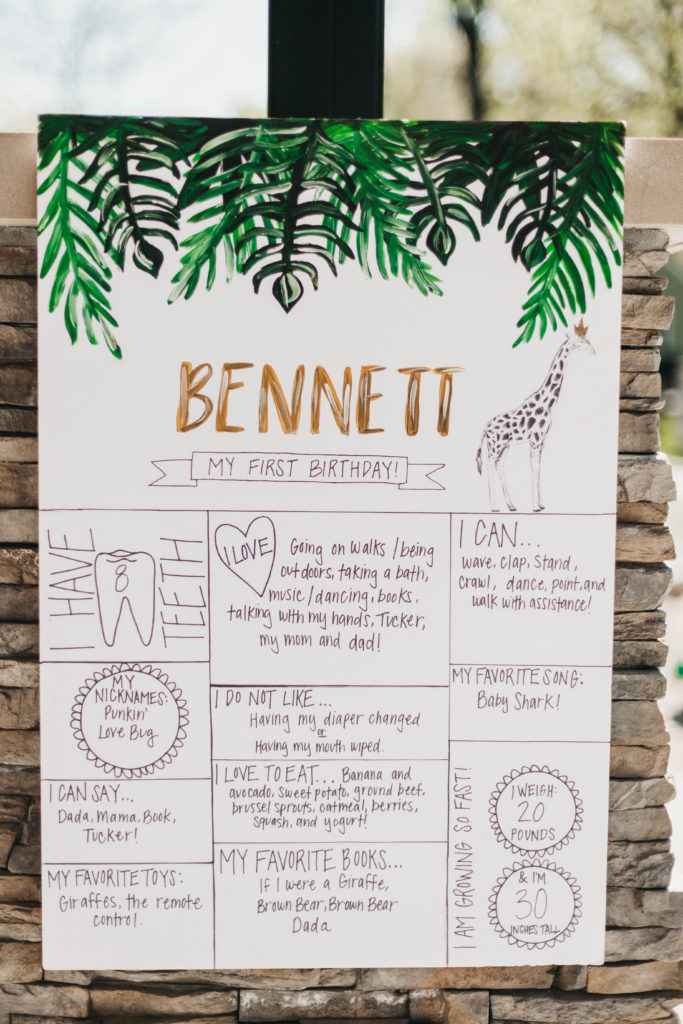 BENNETT
MY FIRST BIRTHDAY!
I HAVE
8
TEETH
I LOVE
Going on walks / being
outdoors, taking a bath,
music / dancing, books,
talking with my hands, Tucker,
my mom and dad!
I CAN...
wave, clap, stand,
crawl, dance, point, and
walk with assistance!
MY
NICKNAMES:
Punkin'
Love Bug
I DO NOT LIKE...
Having my diaper changed
or
Having my mouth wiped.
MY FAVORITE SONG:
Baby Shark!
I CAN SAY...
Dada, Mama, Book,
Tucker!
I LOVE TO EAT... Banana and
avocado, sweet potato, ground beef,
brussel sprouts, oatmeal, berries,
squash, and yogurt!
I AM GROWING SO FAST!
I WEIGH:
20
POUNDS
& I'M
30
INCHES TALL
MY FAVORITE TOYS:
Giraffes, the remote
control.
MY FAVORITE BOOKS...
If I were a Giraffe,
Brown Bear, Brown Bear
Dada